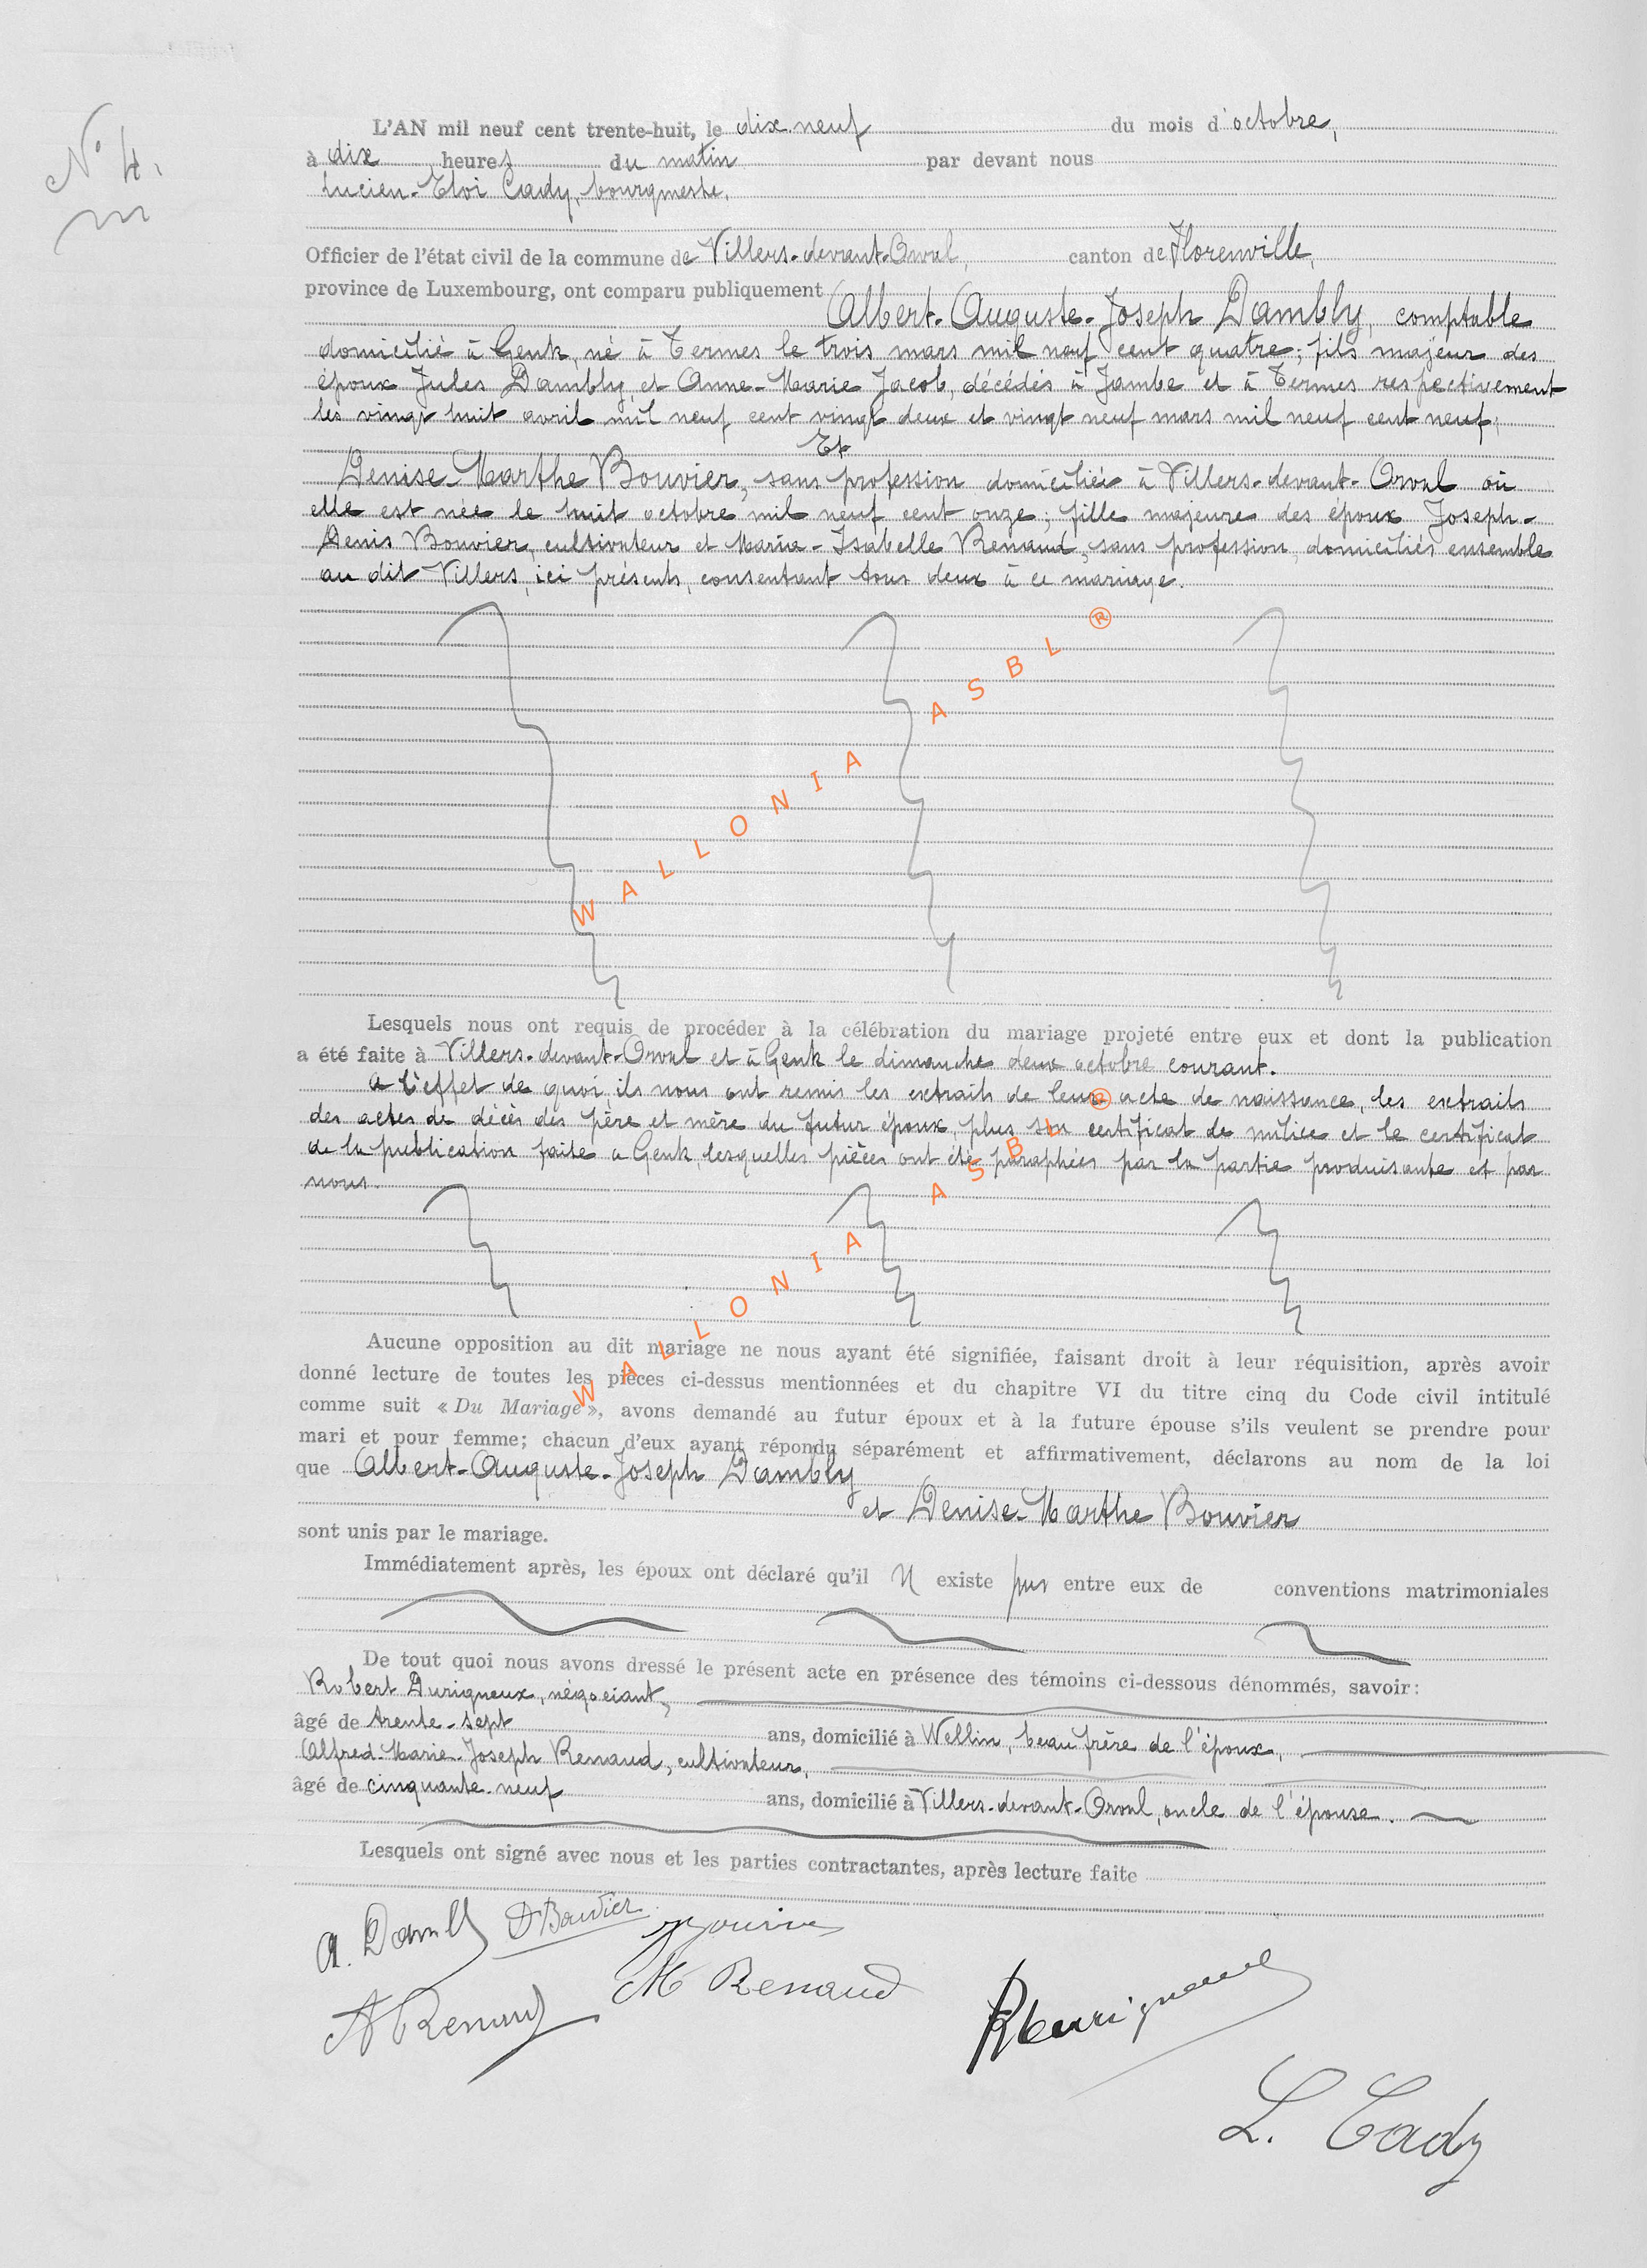 N° 4.
m
L'AN mil neuf cent trente-huit, le dix neuf du mois d'octobre,
à dix heures du matin par devant nous
Lucien-Eloi Cady, bourgmestre,
Officier de l'état civil de la commune de Villers-devant-Orval, canton de Florenville,
province de Luxembourg, ont comparu publiquement
Albert-Auguste-Joseph Dambly, comptable
domicilié à Genk, né à Termes le trois mars mil neuf cent quatre; fils majeur des
époux Jules Dambly, et Anne-Marie Jacob, décédés à Jambe et à Termes respectivement
les vingt huit avril mil neuf cent vingt deux et vingt neuf mars mil neuf cent neuf,
Et
Denise-Marthe Bouvier, sans profession domiciliée à Villers-devant-Orval où
elle est née le huit octobre mil neuf cent onze; fille majeure des époux Joseph-
Denis Bouvier, cultivateur et Maria-Isabelle Renaud, sans profession, domiciliés ensemble
au dit Villers, ici présents, consentant tous deux à ce mariage.
WALLONIA ASBL ®
Lesquels nous ont requis de procéder à la célébration du mariage projeté entre eux et dont la publication
a été faite à Villers-devant-Orval et à Genk le dimanche deux octobre courant.
A l'effet de quoi, ils nous ont remis les extraits de leur acte de naissance, les extraits
des actes de décès des père et mère du futur époux, plus son certificat de milice et le certificat
de la publication faite à Genk, lesquelles pièces ont été paraphées par la partie produisante et par
nous.
WALLONIA ASBL ®
Aucune opposition au dit mariage ne nous ayant été signifiée, faisant droit à leur réquisition, après avoir
donné lecture de toutes les pièces ci-dessus mentionnées et du chapitre VI du titre cinq du Code civil intitulé
comme suit « Du Mariage », avons demandé au futur époux et à la future épouse s'ils veulent se prendre pour
mari et pour femme; chacun d'eux ayant répondu séparément et affirmativement, déclarons au nom de la loi
que Albert-Auguste-Joseph Dambly
et Denise-Marthe Bouvier
sont unis par le mariage.
Immédiatement après, les époux ont déclaré qu'il n existe pas entre eux de conventions matrimoniales
De tout quoi nous avons dressé le présent acte en présence des témoins ci-dessous dénommés, savoir:
Robert Durigneux, négociant,
âgé de trente-sept ans, domicilié à Wellin, beau frère de l'époux,
Alfred-Marie-Joseph Renaud, cultivateur,
âgé de cinquante-neuf ans, domicilié à Villers-devant-Orval, oncle de l'épouse.
Lesquels ont signé avec nous et les parties contractantes, après lecture faite
A. Dambly D Bouvier
A Renaud M Renaud
L. Cady